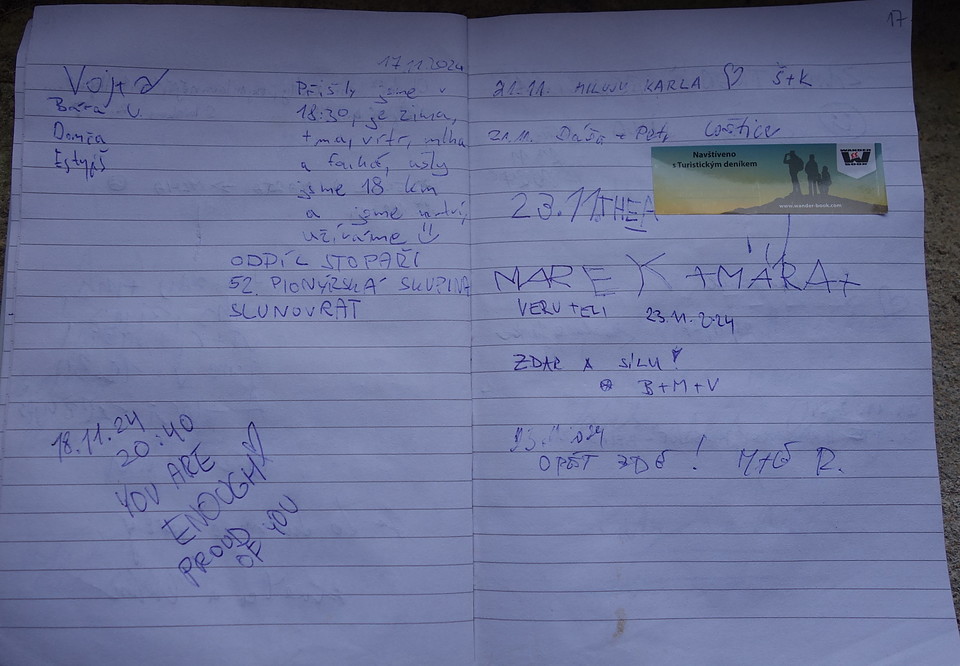 17
17.11.2024
Vojta
Bára V.
Domča
Přišly jsme v
18:30, je zima,
tma, vítr, mlha
a fouká, ušly
jsme 18 km
a jsme
užíváme
ODDÍL STOPAŘI
52. PIONÝRSKÁ SKUPINA
SLUNOVRAT
18.11.24
20:40
YOU ARE
ENOOUGH
PROUD
OF YOU
21.11. MILUJU KARLA ♡ Š+K
21.11. Dáša + Loštice
Navštíveno
s Turistickým deníkem
WANDER
BOOK
www.wander-book.com
23.11. THEA
MAREK +MÁRA+
VERU +ELI 23.11.2024
ZDAR A SÍLU!
B+M+V
OPĚT ZDE! R.